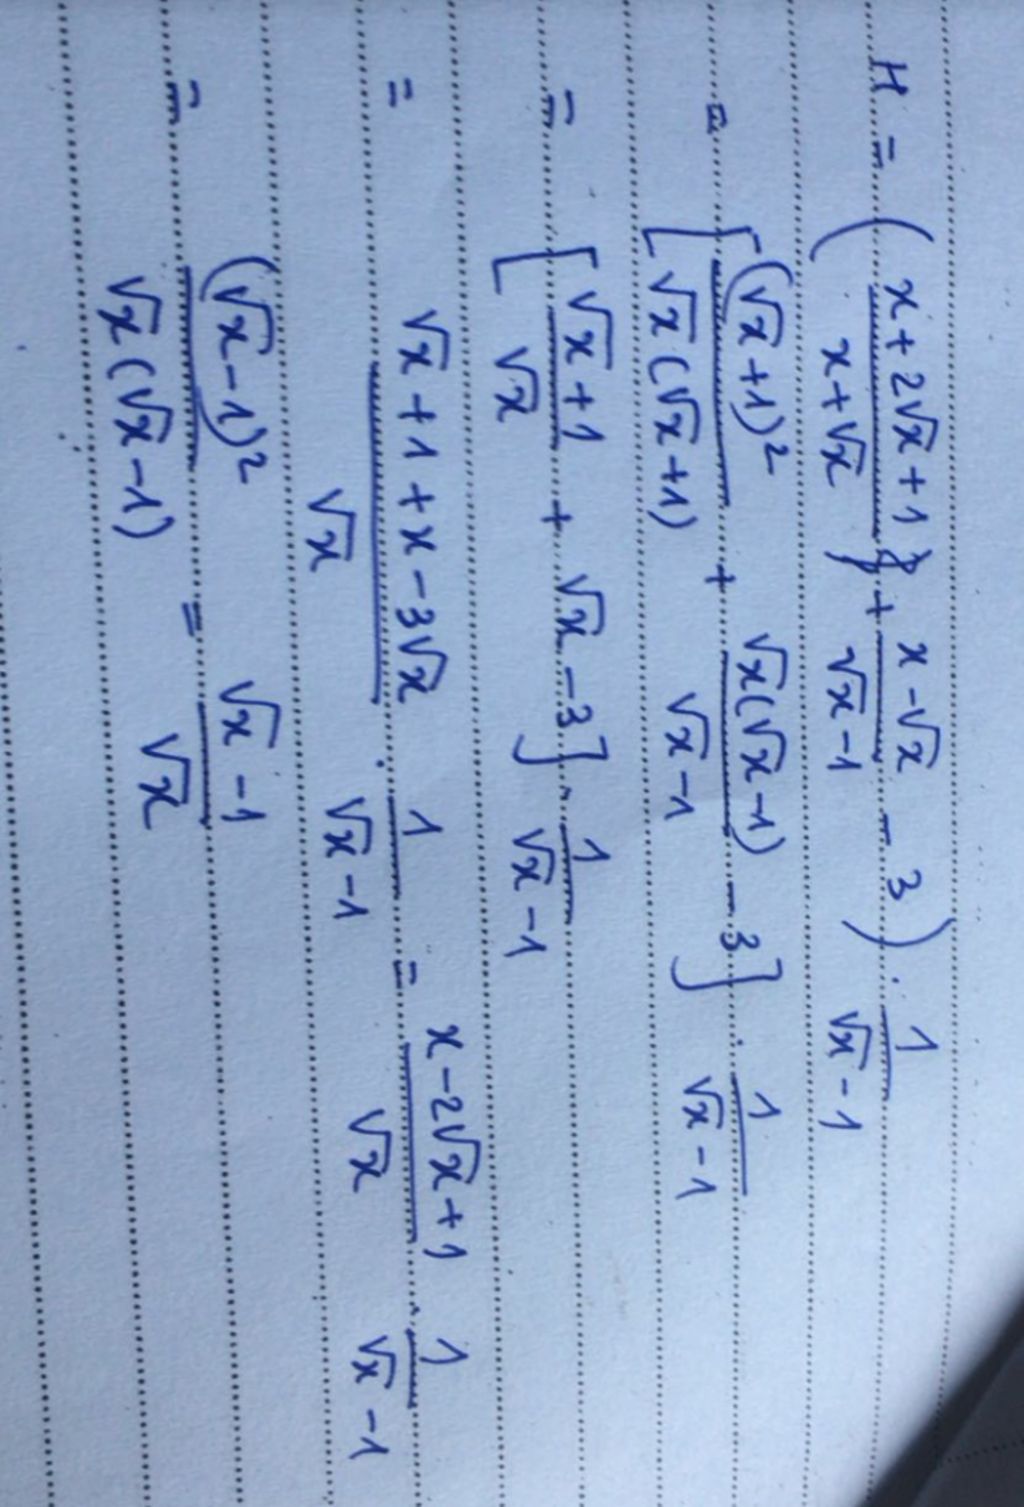 H = ( (x + 2√x + 1)/(x + √x) + (x - √x)/(√x - 1) - 3 ) . 1/(√x - 1)
= [ (√x + 1)²/(√x(√x + 1)) + √x(√x - 1)/(√x - 1) - 3 ] . 1/(√x - 1)
= [ (√x + 1)/√x + √x - 3 ] . 1/(√x - 1)
= (√x + 1 + x - 3√x)/√x . 1/(√x - 1) = (x - 2√x + 1)/√x . 1/(√x - 1)
= (√x - 1)²/(√x(√x - 1)) = (√x - 1)/√x